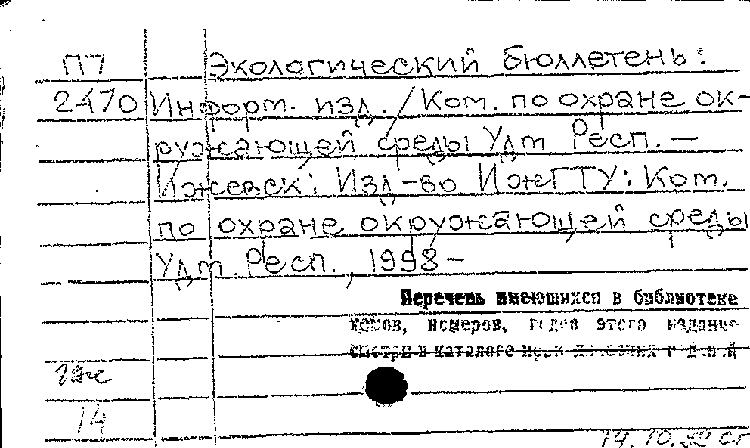 П7 Экологический бюллетень:
2470 Информ. изд. / Ком. по охране ок-
ружающей среды Удм Респ. —
Ижевск: Изд-во ИжГТУ: Ком.
по охране окружающей среды
Удм. Респ., 1998 –
Перечень имеющихся в библиотеке
номеров, годов этого издания
смотри в каталоге
14
14.10.